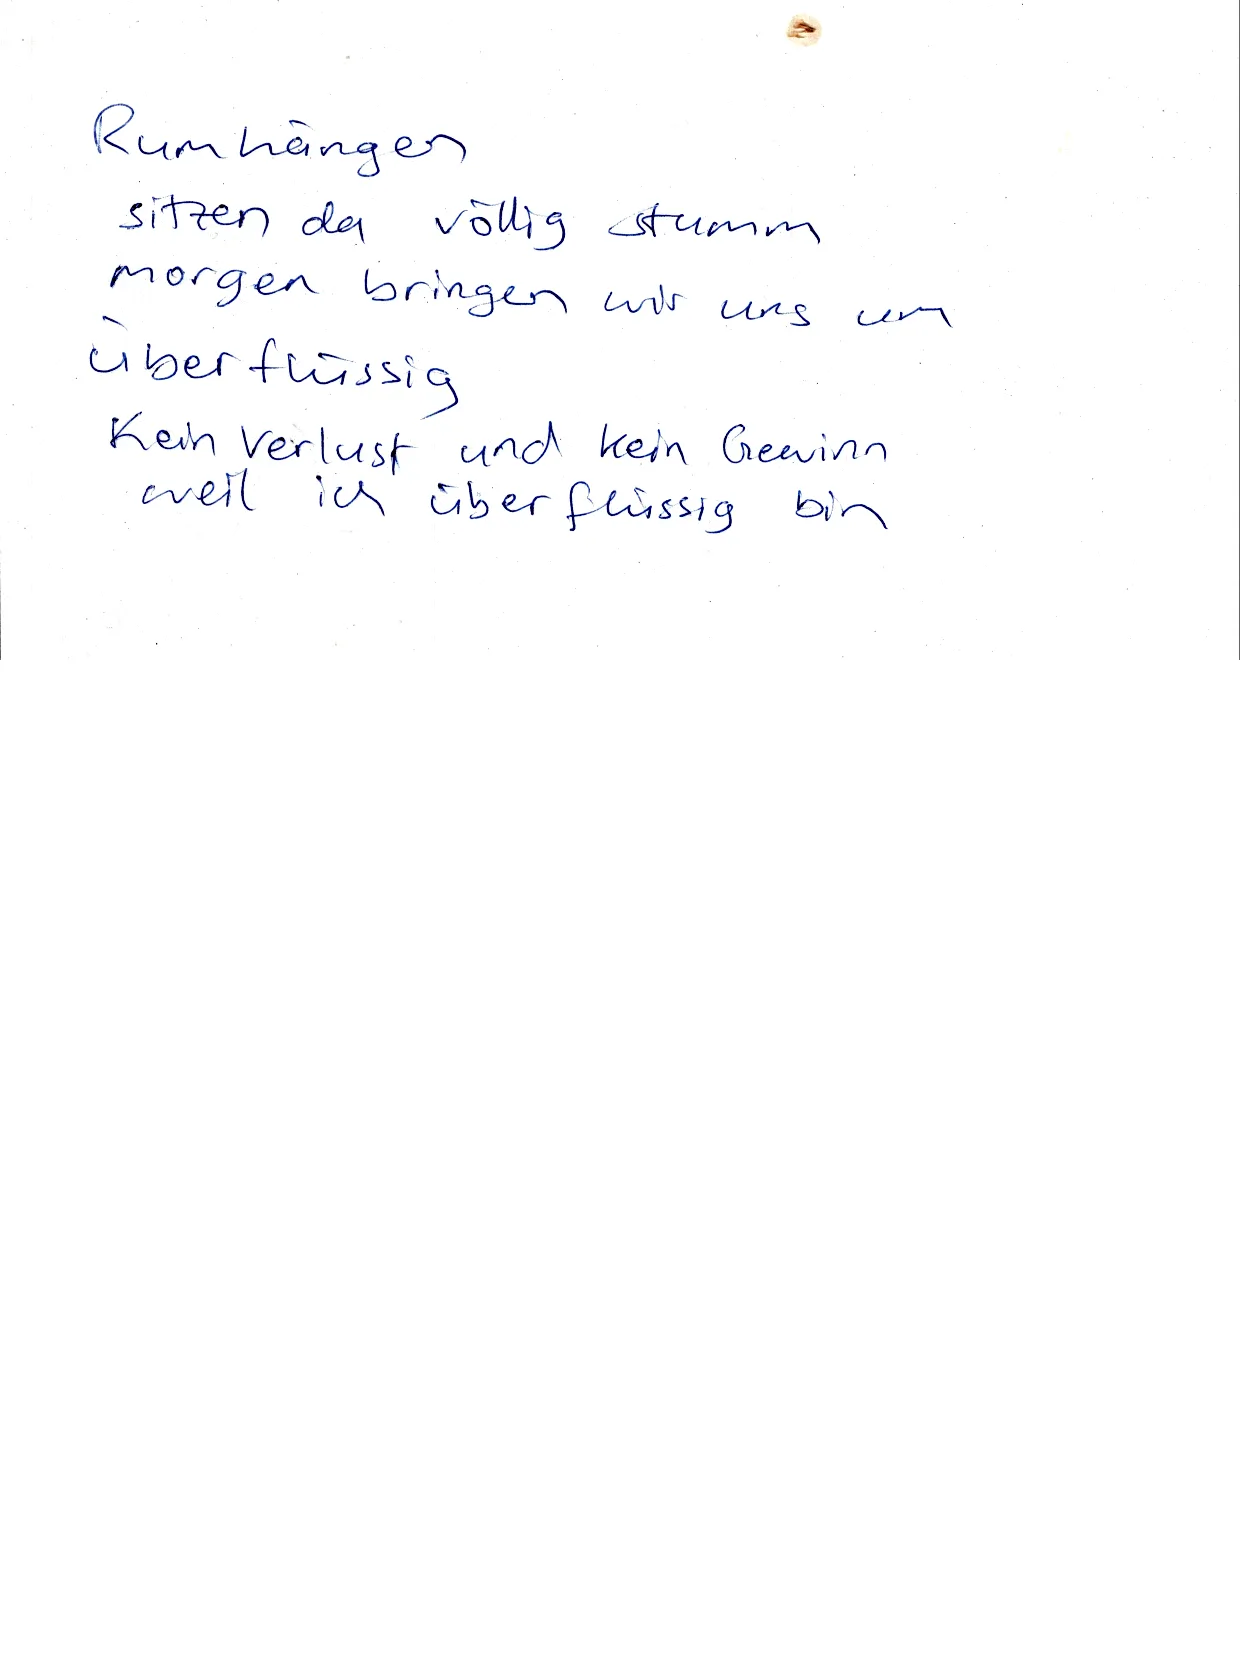 Rumhängen
sitzen da völlig stumm
morgen bringen wir uns um
überflüssig
Kein Verlust und kein Gewinn
weil ich überflüssig bin